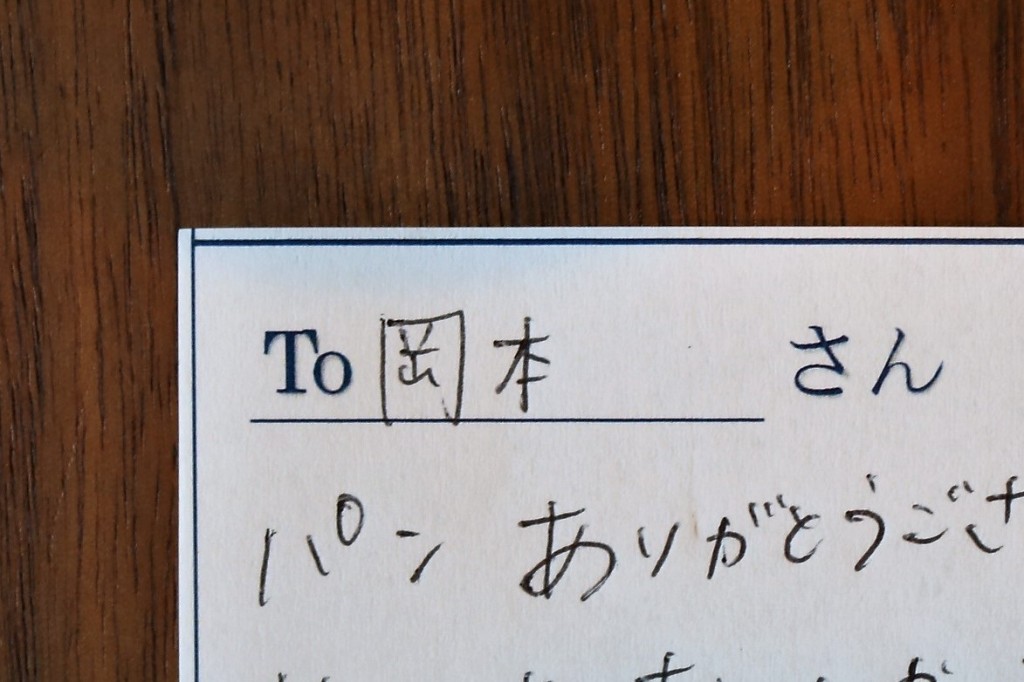 To 岡本 さん
パンありがとうござ